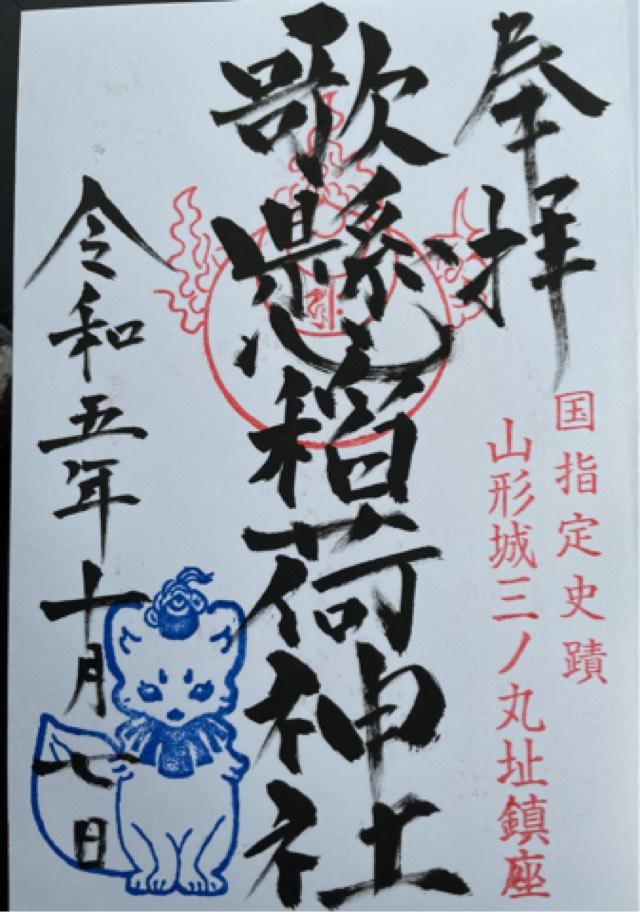 奉拝
国指定史蹟
山形城三ノ丸址鎮座
歌懸稲荷神社
令和五年十月七日